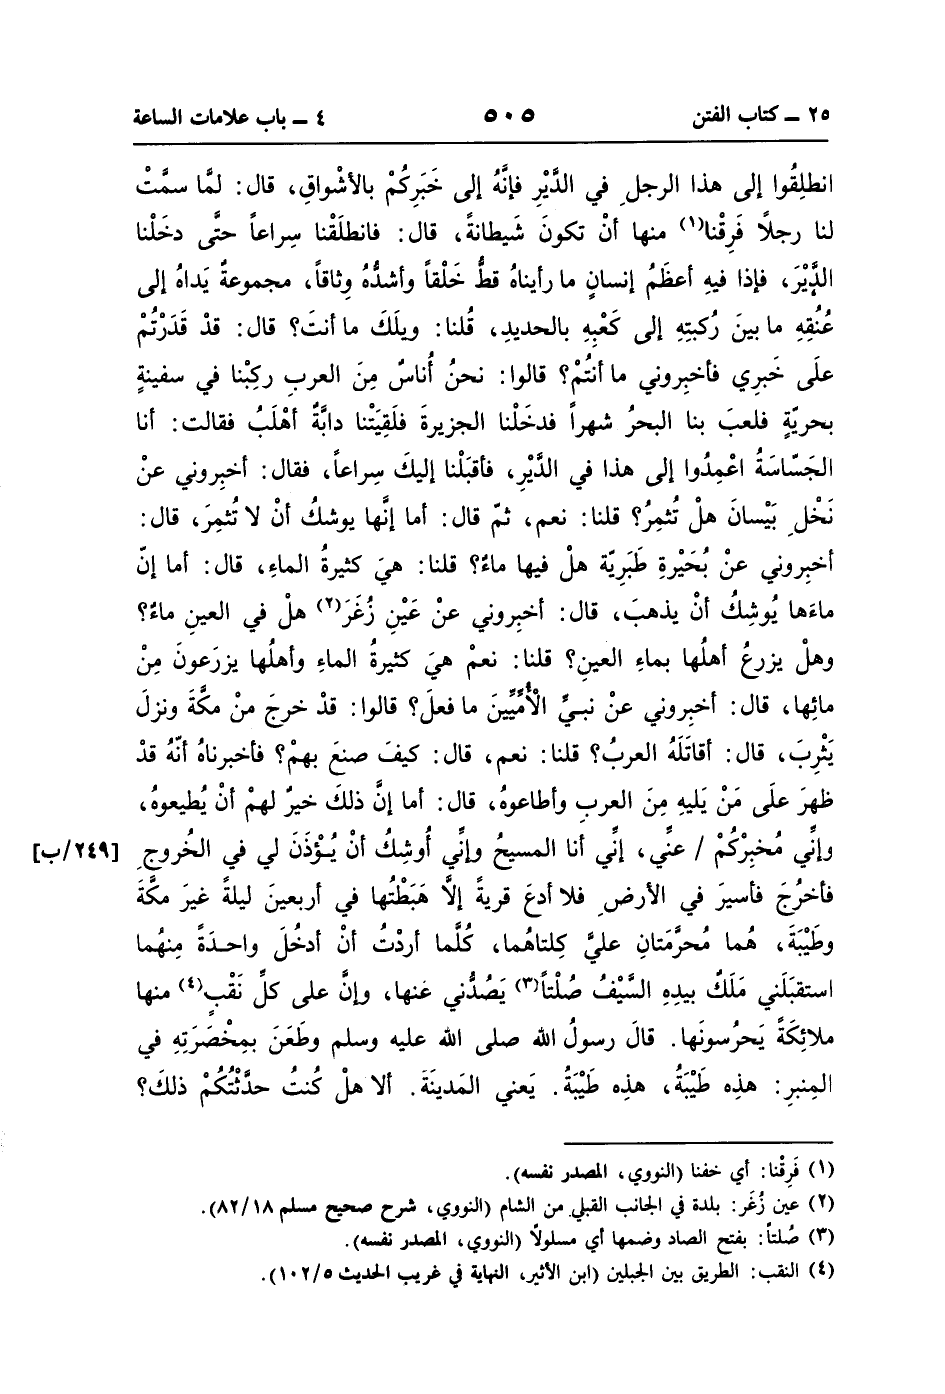 ٢٥ - كتاب الفتن ٥٠٥ ٤ - باب علامات الساعة
انطلِقُوا إلى هذا الرجلِ في الدَّيْرِ فإنَّهُ إلى خَبَرِكُمْ بالأشْواقِ، قال: لمَّا سمَّتْ
لنا رجلاً فَرِقْنا(١) منها أنْ تكونَ شَيطانةً، قال: فانطلَقْنا سِراعاً حتَّى دخلْنا
الدَّيْرَ، فإذا فيهِ أعظَمُ إنسانٍ ما رأيناهُ قطُّ خَلْقاً وأشدُّهُ وِثاقاً، مجموعةٌ يَداهُ إلى
عُنُقِهِ ما بينَ رُكبتِهِ إلى كَعْبِهِ بالحديدِ، قُلنا: ويلَكَ ما أنتَ؟ قال: قدْ قَدَرْتُمْ
علَى خَبَرِي فأخبِروني ما أنتُمْ؟ قالوا: نحنُ أُناسٌ مِنَ العربِ ركِبْنا في سفينةٍ
بحريّةٍ فلعبَ بنا البحرُ شهراً فدخَلْنا الجزيرةَ فلَقِيَتْنا دابَّةٌ أهْلَبُ فقالت: أنا
الجَسّاسَةُ اعْمِدُوا إلى هذا في الدَّيْرِ، فأقبَلْنا إليكَ سِراعاً، فقال: أخبِروني عنْ
نَخْلِ بَيْسانَ هلْ تُثمِرُ؟ قلنا: نعم، ثمّ قال: أما إنَّها يوشكُ أنْ لا تُثمِرَ، قال:
أخبِروني عنْ بُحَيْرةِ طَبَرِيّة هلْ فيها ماءٌ؟ قلنا: هيَ كثيرةُ الماءِ، قال: أما إنّ
ماءَها يُوشِكُ أنْ يذهبَ، قال: أخبِروني عنْ عَيْنِ زُغَرَ(٢) هلْ في العينِ ماءٌ؟
وهلْ يزرعُ أهلُها بماءِ العينِ؟ قلنا: نعمْ هيَ كثيرةُ الماءِ وأهلُها يزرَعونَ مِنْ
مائِها، قال: أخبِروني عنْ نبيِّ الْأُمِّيِّينَ ما فعلَ؟ قالوا: قدْ خرجَ منْ مكَّةَ ونزلَ
يَثْرِبَ، قال: أقاتَلَهُ العربُ؟ قلنا: نعم، قال: كيفَ صنعَ بهمْ؟ فأخبرناهُ أنّهُ قدْ
ظهرَ علَى مَنْ يَليهِ مِنَ العربِ وأطاعوهُ، قال: أما إنَّ ذلكَ خيرٌ لهمْ أنْ يُطيعوهُ،
وإنِّي مُخبِرُكُمْ / عنِّي، إنِّي أنا المسيحُ وإنِّي أُوشِكُ أنْ يُؤذَنَ لي في الخُروجِ [٢٤٩/ب]
فأخرُجَ فأسيرَ في الأرضِ فلا أدعَ قريةً إلَّا هَبَطْتُها في أربعينَ ليلةً غيرَ مكَّةَ
وطَيْبَةَ، هُما مُحرَّمَتانِ عليَّ كِلتاهُما، كُلَّما أردْتُ أنْ أدخُلَ واحدَةً مِنهُما
استقبَلَني مَلَكٌ بيدِهِ السَّيْفُ صُلْتاً(٣) يَصُدُّني عَنها، وإنَّ على كلِّ نَقْبٍ(٤) منها
ملائِكَةً يَحرُسونَها. قالَ رسولُ الله صلى الله عليه وسلم وطَعَنَ بمِخْصَرَتِهِ في
المِنبرِ: هذِهِ طَيْبَةُ، هذِه طَيْبَةُ. يَعني المَدينَةَ. ألا هلْ كُنتُ حدَّثْتُكُمْ ذلكَ؟
(١) فَرِقْنا: أي خفنا (النووي، المصدر نفسه).
(٢) عين زُغَر: بلدة في الجانب القبلي من الشام (النووي، شرح صحيح مسلم ٨٢/١٨).
(٣) صُلتاً: بفتح الصاد وضمها أي مسلولًا (النووي، المصدر نفسه).
(٤) النقب: الطريق بين الجبلين (ابن الأثير، النهاية في غريب الحديث ١٠٢/٥).